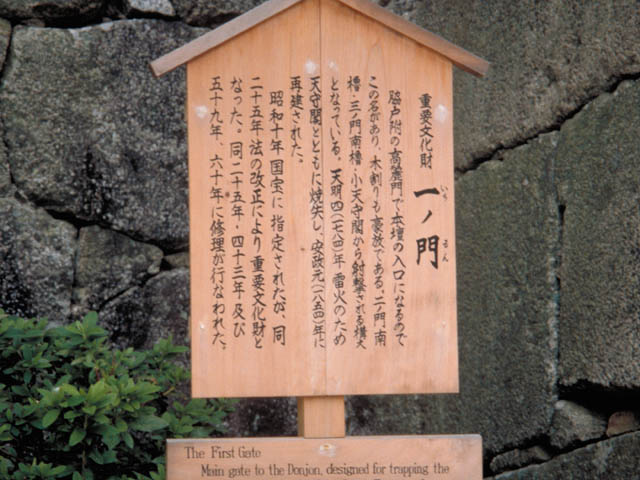 重要文化財 一ノ門
いち もん
脇戸附の高麗門で本壇の入口になるので
この名があり、木割りも豪放である。二ノ門南
櫓・三ノ門南櫓・小天守閣から射撃される構え
となっている。天明四(一七八四)年雷火のため
天守閣とともに焼失し、安政元(一八五四)年に
再建された。
昭和十年国宝に指定されたが、同
二十五年法の改正により重要文化財と
なった。同二十五年・四十三年及び
五十九年、六十年に修理が行なわれた。
The First Gate
Main gate to the Donjon, designed for trapping the